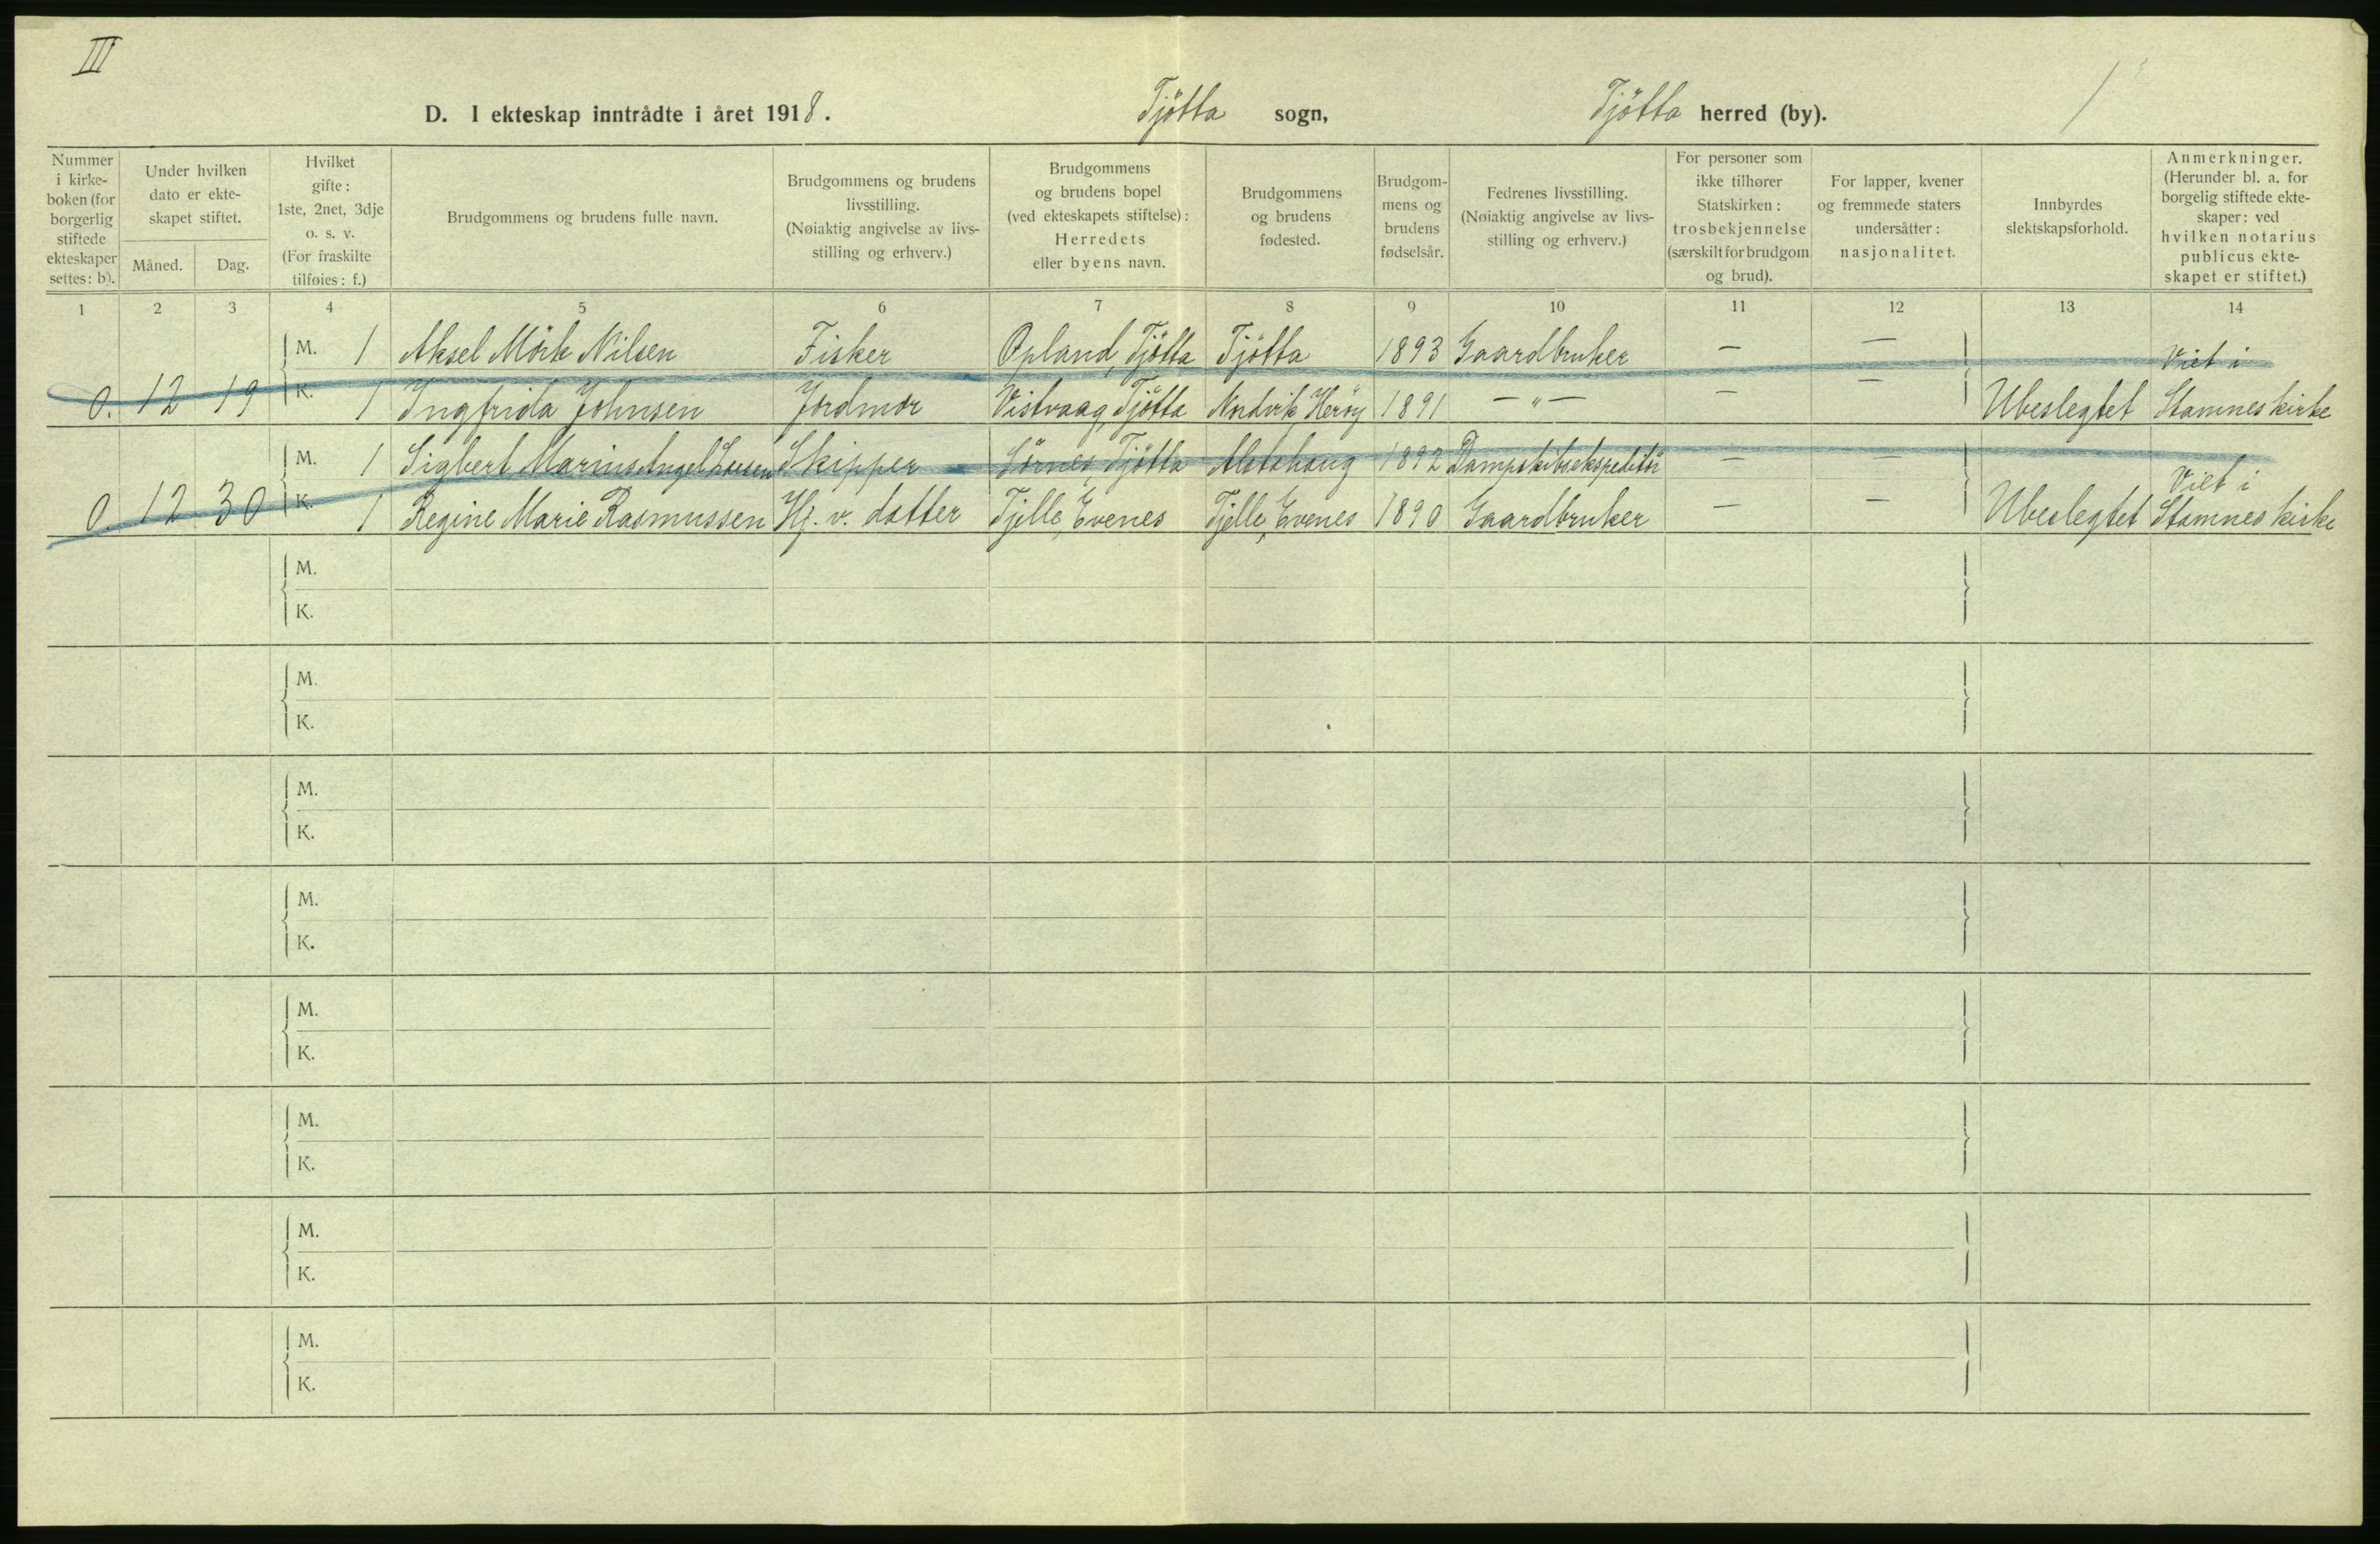 III
D. I ekteskap inntrådte i året 1918. Tjötta sogn, Tjötta herred (by). 1
Nummer i kirke-boken (for borgerlig stiftede ekteskaper settes: b).
Under hvilken dato er ekte-skapet stiftet.
Måned. Dag.
Hvilket gifte: 1ste, 2net, 3dje o. s. v. (For fraskilte tilføies: f.)
Brudgommens og brudens fulle navn.
Brudgommens og brudens livsstilling. (Nøiaktig angivelse av livs-stilling og erhverv.)
Brudgommens og brudens bopel (ved ekteskapets stiftelse): Herredets eller byens navn.
Brudgommens og brudens fødested.
Brudgom-mens og brudens fødselsår.
Fedrenes livsstilling. (Nøiaktig angivelse av livs-stilling og erhverv.)
For personer som ikke tilhører Statskirken: trosbekjennelse (særskilt for brudgom og brud).
For lapper, kvener og fremmede staters undersåtter: nasjonalitet.
Innbyrdes slektskapsforhold.
Anmerkninger. (Herunder bl. a. for borgelig stiftede ekte-skaper: ved hvilken notarius publicus ekte-skapet er stiftet.)
1 2 3 4 5 6 7 8 9 10 11 12 13 14
M. 1 Aksel Mörk Nilsen Fisker Opland, Tjötta Tjötta 1893 Gaardbruker — — Viet i
0. 12 19 K. 1 Ingfrida Johnsen Jordmor Vistvaag, Tjötta Nordvik, Heröy 1891 — „ — — — Ubeslegtet Stamnes kirke
M. 1 Sigbert Marius Angel Larsen Skipper Sörnes, Tjötta Alstahaug 1892 Dampskibsekspeditör — — Viet i
0 12 30 K. 1 Regine Marie Rasmussen Hj. v. datter Tjelle, Evenes Tjelle, Evenes 1890 Gaardbruker — — Ubeslegtet Stamnes kirke
M.
K.
M.
K.
M.
K.
M.
K.
M.
K.
M.
K.
M.
K.
M.
K.